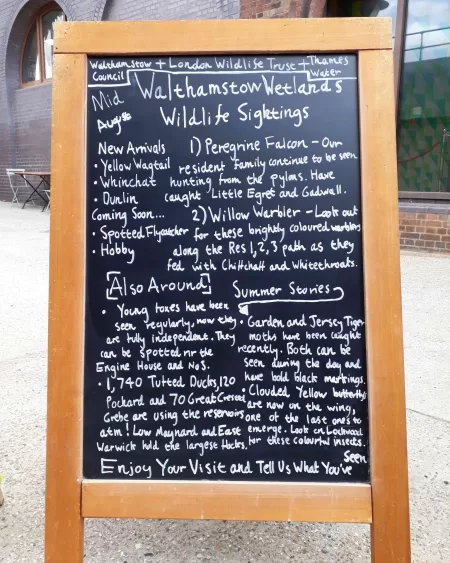 Walthamstow + London Wildlife Trust + Thames
Council Water
Walthamstow Wetlands
Mid
August
Wildlife Sightings
New Arrivals
• Yellow Wagtail
• Whinchat
• Dunlin
Coming Soon...
• Spotted Flycatcher
• Hobby
1) Peregrine Falcon - Our
resident family continue to be seen
hunting from the pylons. Have
caught Little Egret and Gadwall.
2) Willow Warbler - Look out
for these brightly coloured warblers
along the Res 1, 2, 3 path as they
fed with Chiffchaff and Whitethroats.
[Also Around]
• Young foxes have been
seen regularly, now they
are fully independent. They
can be spotted nr the
Engine House and No5.
• 1,740 Tufted Ducks, 120
Pochard and 70 Great Crested
Grebe are using the reservoirs
atm! Low Maynard and East
Warwick hold the largest flocks.
Summer Stories
• Garden and Jersey Tiger
moths have been caught
recently. Both can be
seen during the day and
have bold black markings.
• Clouded Yellow butterflys
are now on the wing,
one of the last ones to
emerge. Look on Lockwood
for these colourful insects.
Enjoy Your Visit and Tell Us What You've
Seen